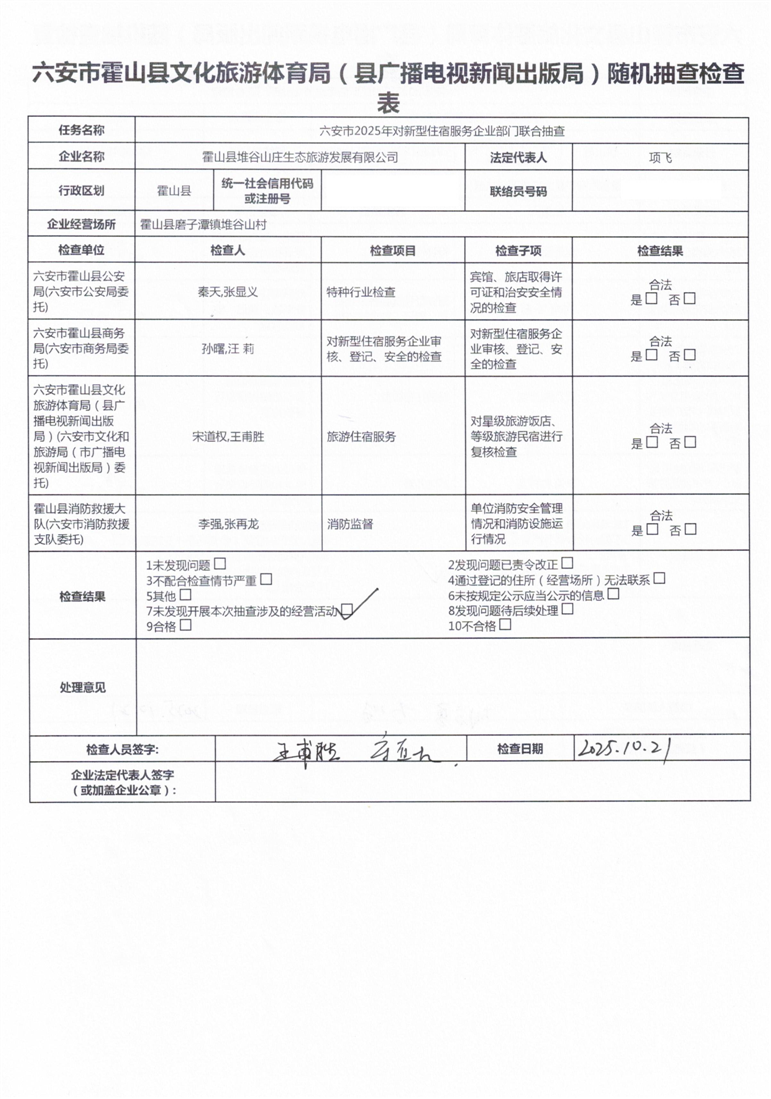 六安市霍山县文化旅游体育局（县广播电视新闻出版局）随机抽查检查
表
任务名称 六安市2025年对新型住宿服务企业部门联合抽查
企业名称 霍山县堆谷山庄生态旅游发展有限公司 法定代表人 项飞
行政区划 霍山县 统一社会信用代码
或注册号 联络员号码
企业经营场所 霍山县磨子潭镇堆谷山村
检查单位 检查人 检查项目 检查子项 检查结果
六安市霍山县公安
局(六安市公安局委
托)
秦天,张显义
特种行业检查
宾馆、旅店取得许
可证和治安安全情
况的检查
合法
是□ 否□
六安市霍山县商务
局(六安市商务局委
托)
孙曙,汪 莉
对新型住宿服务企业审
核、登记、安全的检查
对新型住宿服务企
业审核、登记、安
全的检查
合法
是□ 否□
六安市霍山县文化
旅游体育局（县广
播电视新闻出版
局）(六安市文化和
旅游局（市广播电
视新闻出版局）委
托)
宋道权,王甫胜
旅游住宿服务
对星级旅游饭店、
等级旅游民宿进行
复核检查
合法
是□ 否□
霍山县消防救援大
队(六安市消防救援
支队委托)
李强,张再龙
消防监督
单位消防安全管理
情况和消防设施运
行情况
合法
是□ 否□
检查结果
1未发现问题□ 2发现问题已责令改正□
3不配合检查情节严重□ 4通过登记的住所（经营场所）无法联系□
5其他□ 6未按规定公示应当公示的信息□
7未发现开展本次抽查涉及的经营活动☑ 8发现问题待后续处理□
9合格□ 10不合格□
处理意见
检查人员签字: 王甫胜 检查日期 2025.10.21
企业法定代表人签字
（或加盖企业公章）: